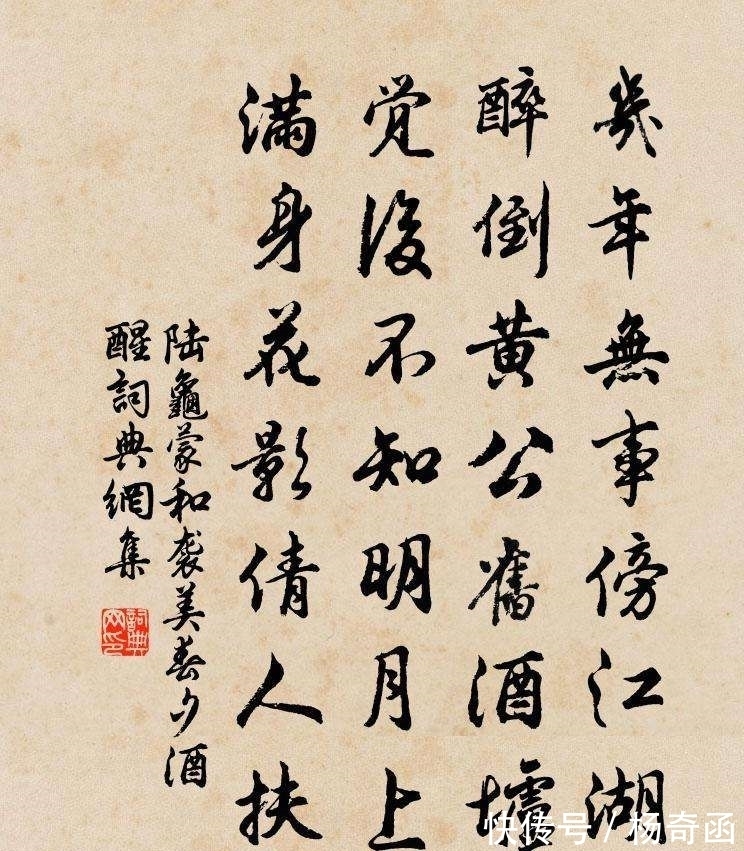 幾年無事傍江湖
醉倒黄公舊酒壚
覚後不知明月上
满身花影倩人扶
陆龜蒙和袭美春夕酒
醒詞典網集
詞典
快传号 / 杨奇函